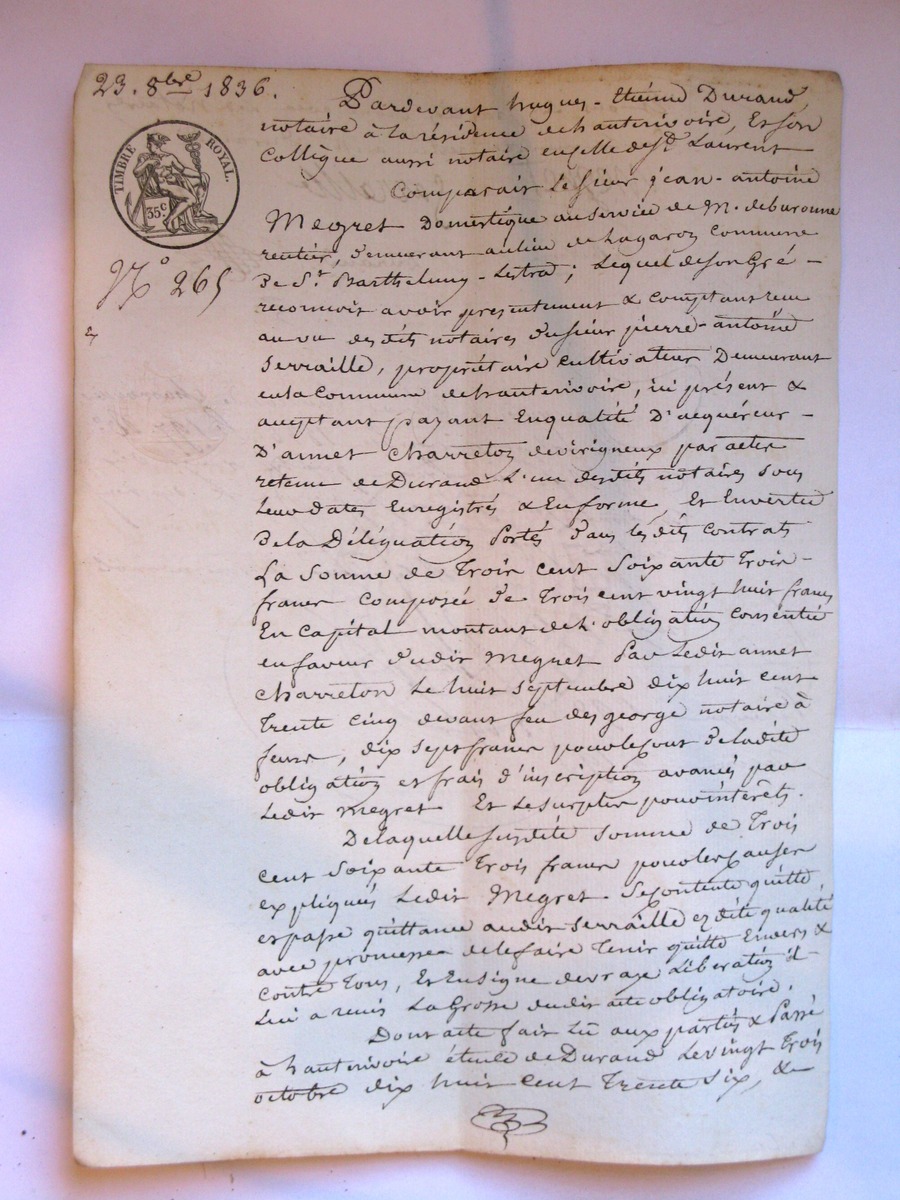 23. 8bre 1836.
TIMBRE ROYAL.
35c
No 265
Pardevant hugues-Etiénne Durand,
notaire à la résidence de hauterivoire, et son
collègue aussi notaire en celle de st Laurent
Comparait le sieur jean-antoine
Megret Domestique au service de M. de
rentier, demeurant au lieu de Lagaroy commune
de St. Barthelemy-Lestra; Lequel de son Gré -
reconnoit avoir présentement & comptant recu
au vu des dits notaires du sieur pierre-antoine
Serraille, propriétaire cultivateur Demeurant
en la commune de hauterivoire, ici présent &
acceptant payant En qualité D'acquéreur -
D'annet Charreton de virigneux par actes
retenu de Durand L'un des dits notaires sous
Leurs dates Enregistrés & En forme, Et En vertu
de la Délégation Portés dans les dits contrats
La somme de Trois cent Soixante Trois -
francs composée de Trois cent vingt huit francs
En capital montant de L'obligation consentie
en faveur dudit Megret Par Ledit annet
Charreton Le huit Septembre dix huit cent
Trente cinq devant feu des george notaire à
feurs, dix sept francs pour le cout de la dite
obligation et frais d'inscription avancés par
Ledit Megret Et Le surplus pour intérêts.
De laquelle susdite somme de Trois
cent soixante Trois francs pour les causes
expliquées Ledit Megret Se contente quitte
et passe quittance audit Serraille en dite qualité
avec promesse de le faire Tenir quitte Envers &
contre Tous, Et En signe de vraye Libération il -
Lui a remis La Grosse dudit acte obligatoire.
Dont acte fait Lu aux partiés & Passé
à hauterivoire étude de Durand Le vingt Trois
octobre dix huit cent Trente Six, &